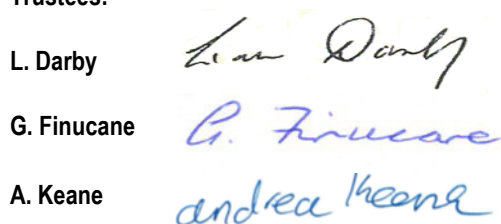 Trustees:
L. Darby Liam Darby
G. Finucane G. Finucane
A. Keane andrea Keane